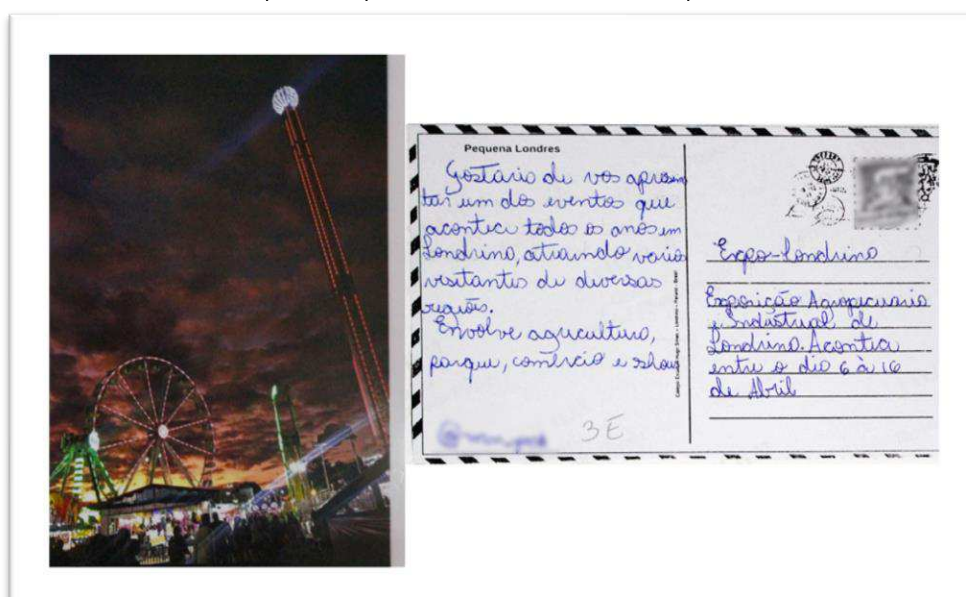 Pequena Londres
Gostaria de vos apresen
tar um dos eventos que
acontece todos os anos em
Londrina, atraindo vario
visitantes de diversas
regiões.
Envolve agricultura,
parque, comércio e show
3E
Expo-Londrina
Exposição Agropecuaria
e Industrial de
Londrina. Acontece
entre o dia 6 à 16
de Abril